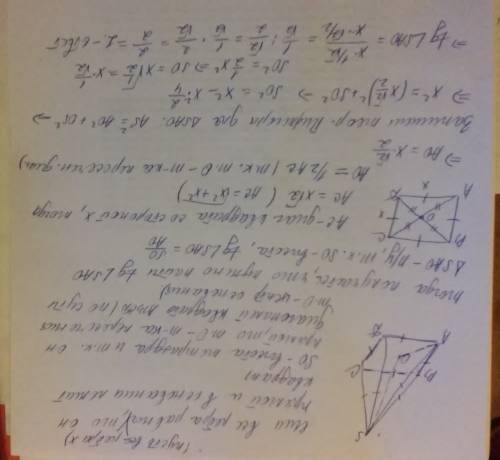 (пусть все рёбра x)
если все рёбра равны, то он
прямой и в основании лежит
квадрат
SO - высота тетраэдра и т.к. он
прямой, то т.O - т-ка пересечения
диагоналей квадрата ABCD (по сути
т.O - центр основания)
тогда получается, что нужно найти tg∠SAO
ΔSAO - п/у, т.к. SO - высота, tg∠SAO = SO/AO
AC - диаг. квадрата со стороной x, тогда
AC = x√2 (AC = √(x²+x²))
AO = 1/2 AC (т.к. т.O - т-ка пересечен. диаг.)
⇒ AO = x√2/2
Запишем теор. Пифагора для ΔSAO: AS² = AO² + OS² ⇒
⇒ x² = (x√2/2)² + SO² ⇒ SO² = x² - x²·2/4
SO² = 1/2 x² ⇒ SO = x√1/2 = x·1/√2
⇒ tg∠SAO = (x·1/√2)/(x·√2/2) = 1/√2 : √2/2 = 1/√2 · 2/√2 = 2/2 = 1 - ответ
A
B
C
D
O
S
A
B
C
D
O
x
x